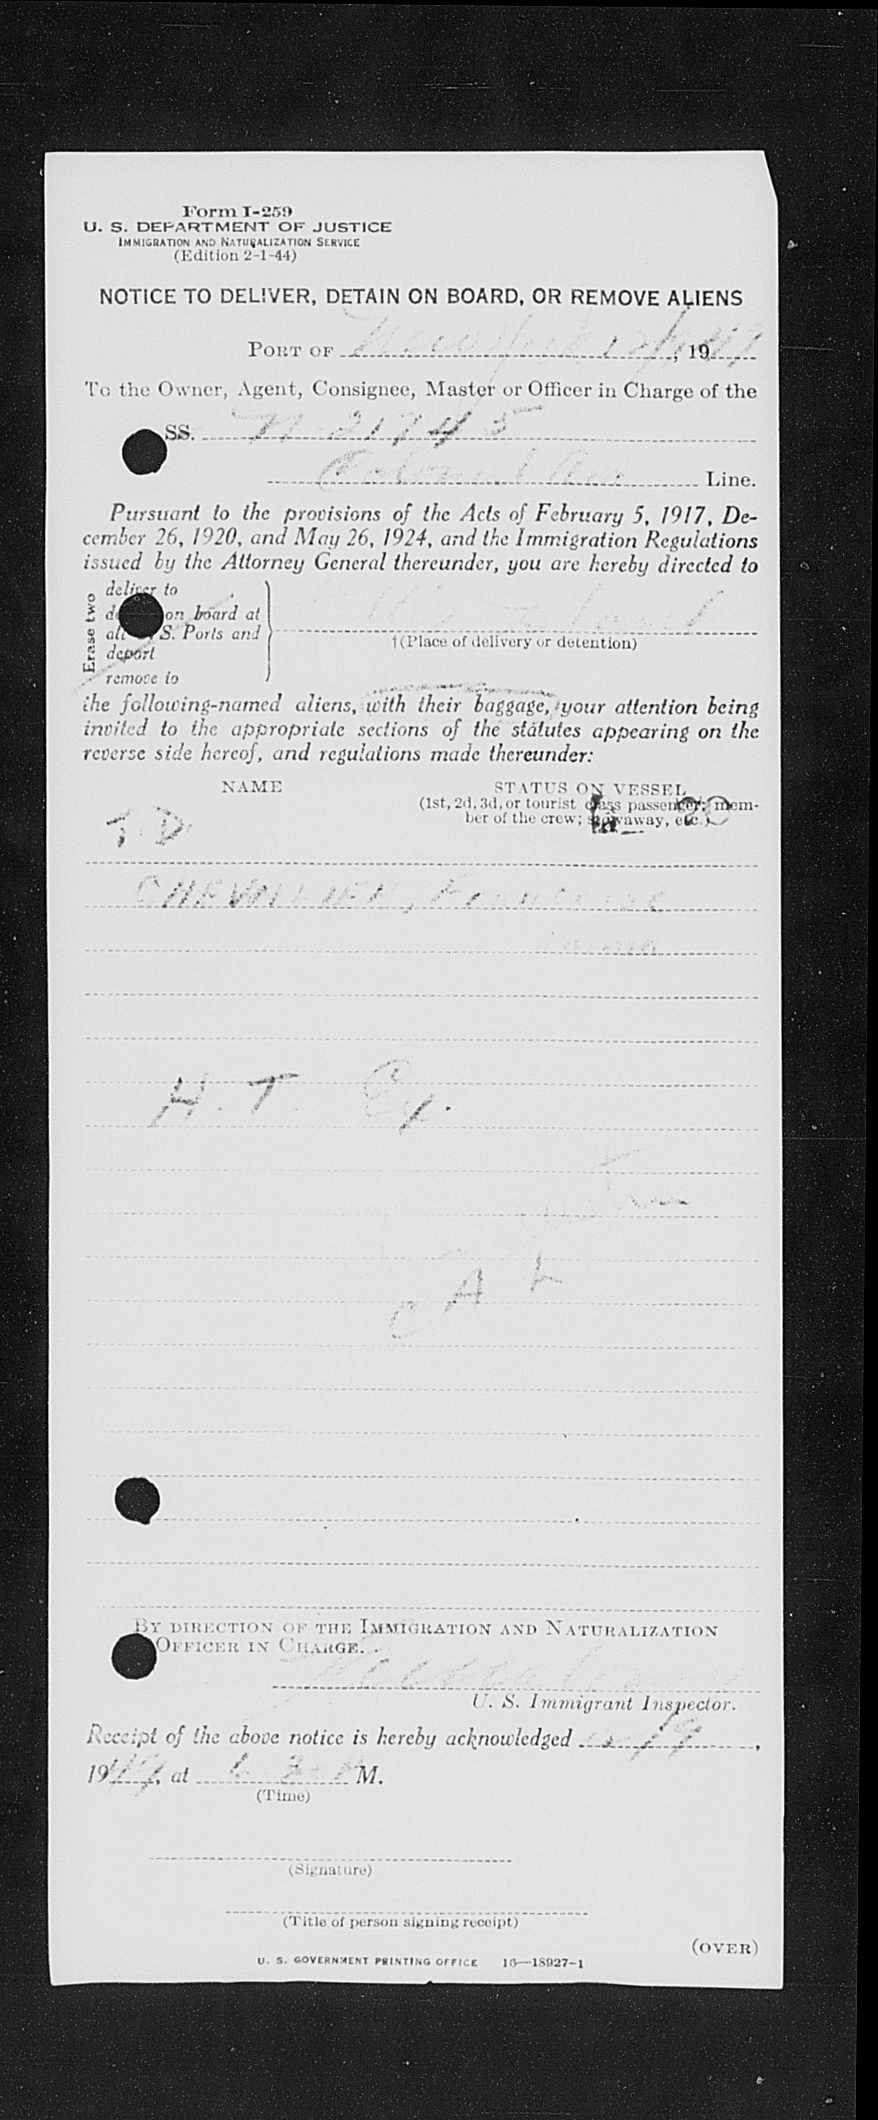 Form I-259
U. S. DEPARTMENT OF JUSTICE
IMMIGRATION AND NATURALIZATION SERVICE
(Edition 2-1-44)
NOTICE TO DELIVER, DETAIN ON BOARD, OR REMOVE ALIENS
PORT OF New York 12/9, 1949
To the Owner, Agent, Consignee, Master or Officer in Charge of the
SS. N 21745
Colonial Air Line.
Pursuant to the provisions of the Acts of February 5, 1917, De-
cember 26, 1920, and May 26, 1924, and the Immigration Regulations
issued by the Attorney General thereunder, you are hereby directed to
Erase two
deliver to
on board at
S. Ports and
deport
remove to
†(Place of delivery or detention)
the following-named aliens, with their baggage, your attention being
invited to the appropriate sections of the statutes appearing on the
reverse side hereof, and regulations made thereunder:
NAME STATUS ON VESSEL
(1st, 2d, 3d, or tourist class passenger; mem-
ber of the crew; stowaway, etc.)
T. D
CHEVALIER, Francoise
H. T. Ex.
C A L
BY DIRECTION OF THE IMMIGRATION AND NATURALIZATION
OFFICER IN CHARGE.
U. S. Immigrant Inspector.
Receipt of the above notice is hereby acknowledged 12/9,
1949, at M.
(Time)
(Signature)
(Title of person signing receipt)
(OVER)
U. S. GOVERNMENT PRINTING OFFICE 16—18927-1